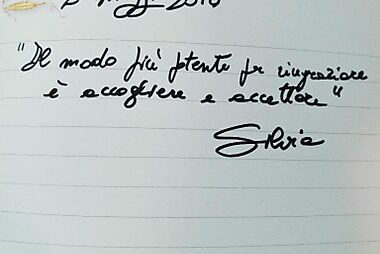 "Il modo più potente per ringraziare
è accogliere e accettare"
Silvia